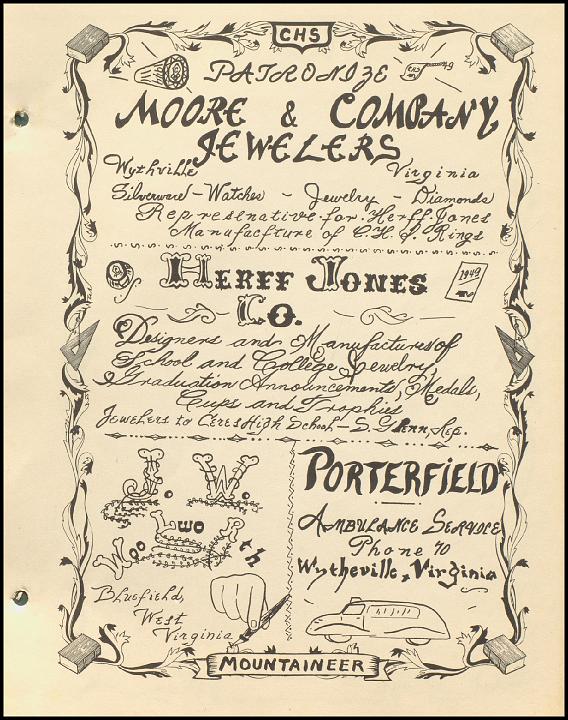 CHS
PATRONIZE
MOORE & COMPANY,
JEWELERS
Wythville Virginia
Silverward - Watches - Jewelry - Diamonds
Represinative for Herff Jones
Manufacture of C.H.S. Rings
HERFF JONES
1949
CO.
Designers and Manufactures of
School and College Jewelry,
Graduation Announcements, Medals,
Cups and Trophies
Jewelers to Ceres High School - S. G. Penn, Rep.
J. W.
Woolwo R th
Bluefield,
West
Virginia
PORTERFIELD
AMBULANCE SERVICE
Phone 70
Wytheville, Virginia
MOUNTAINEER